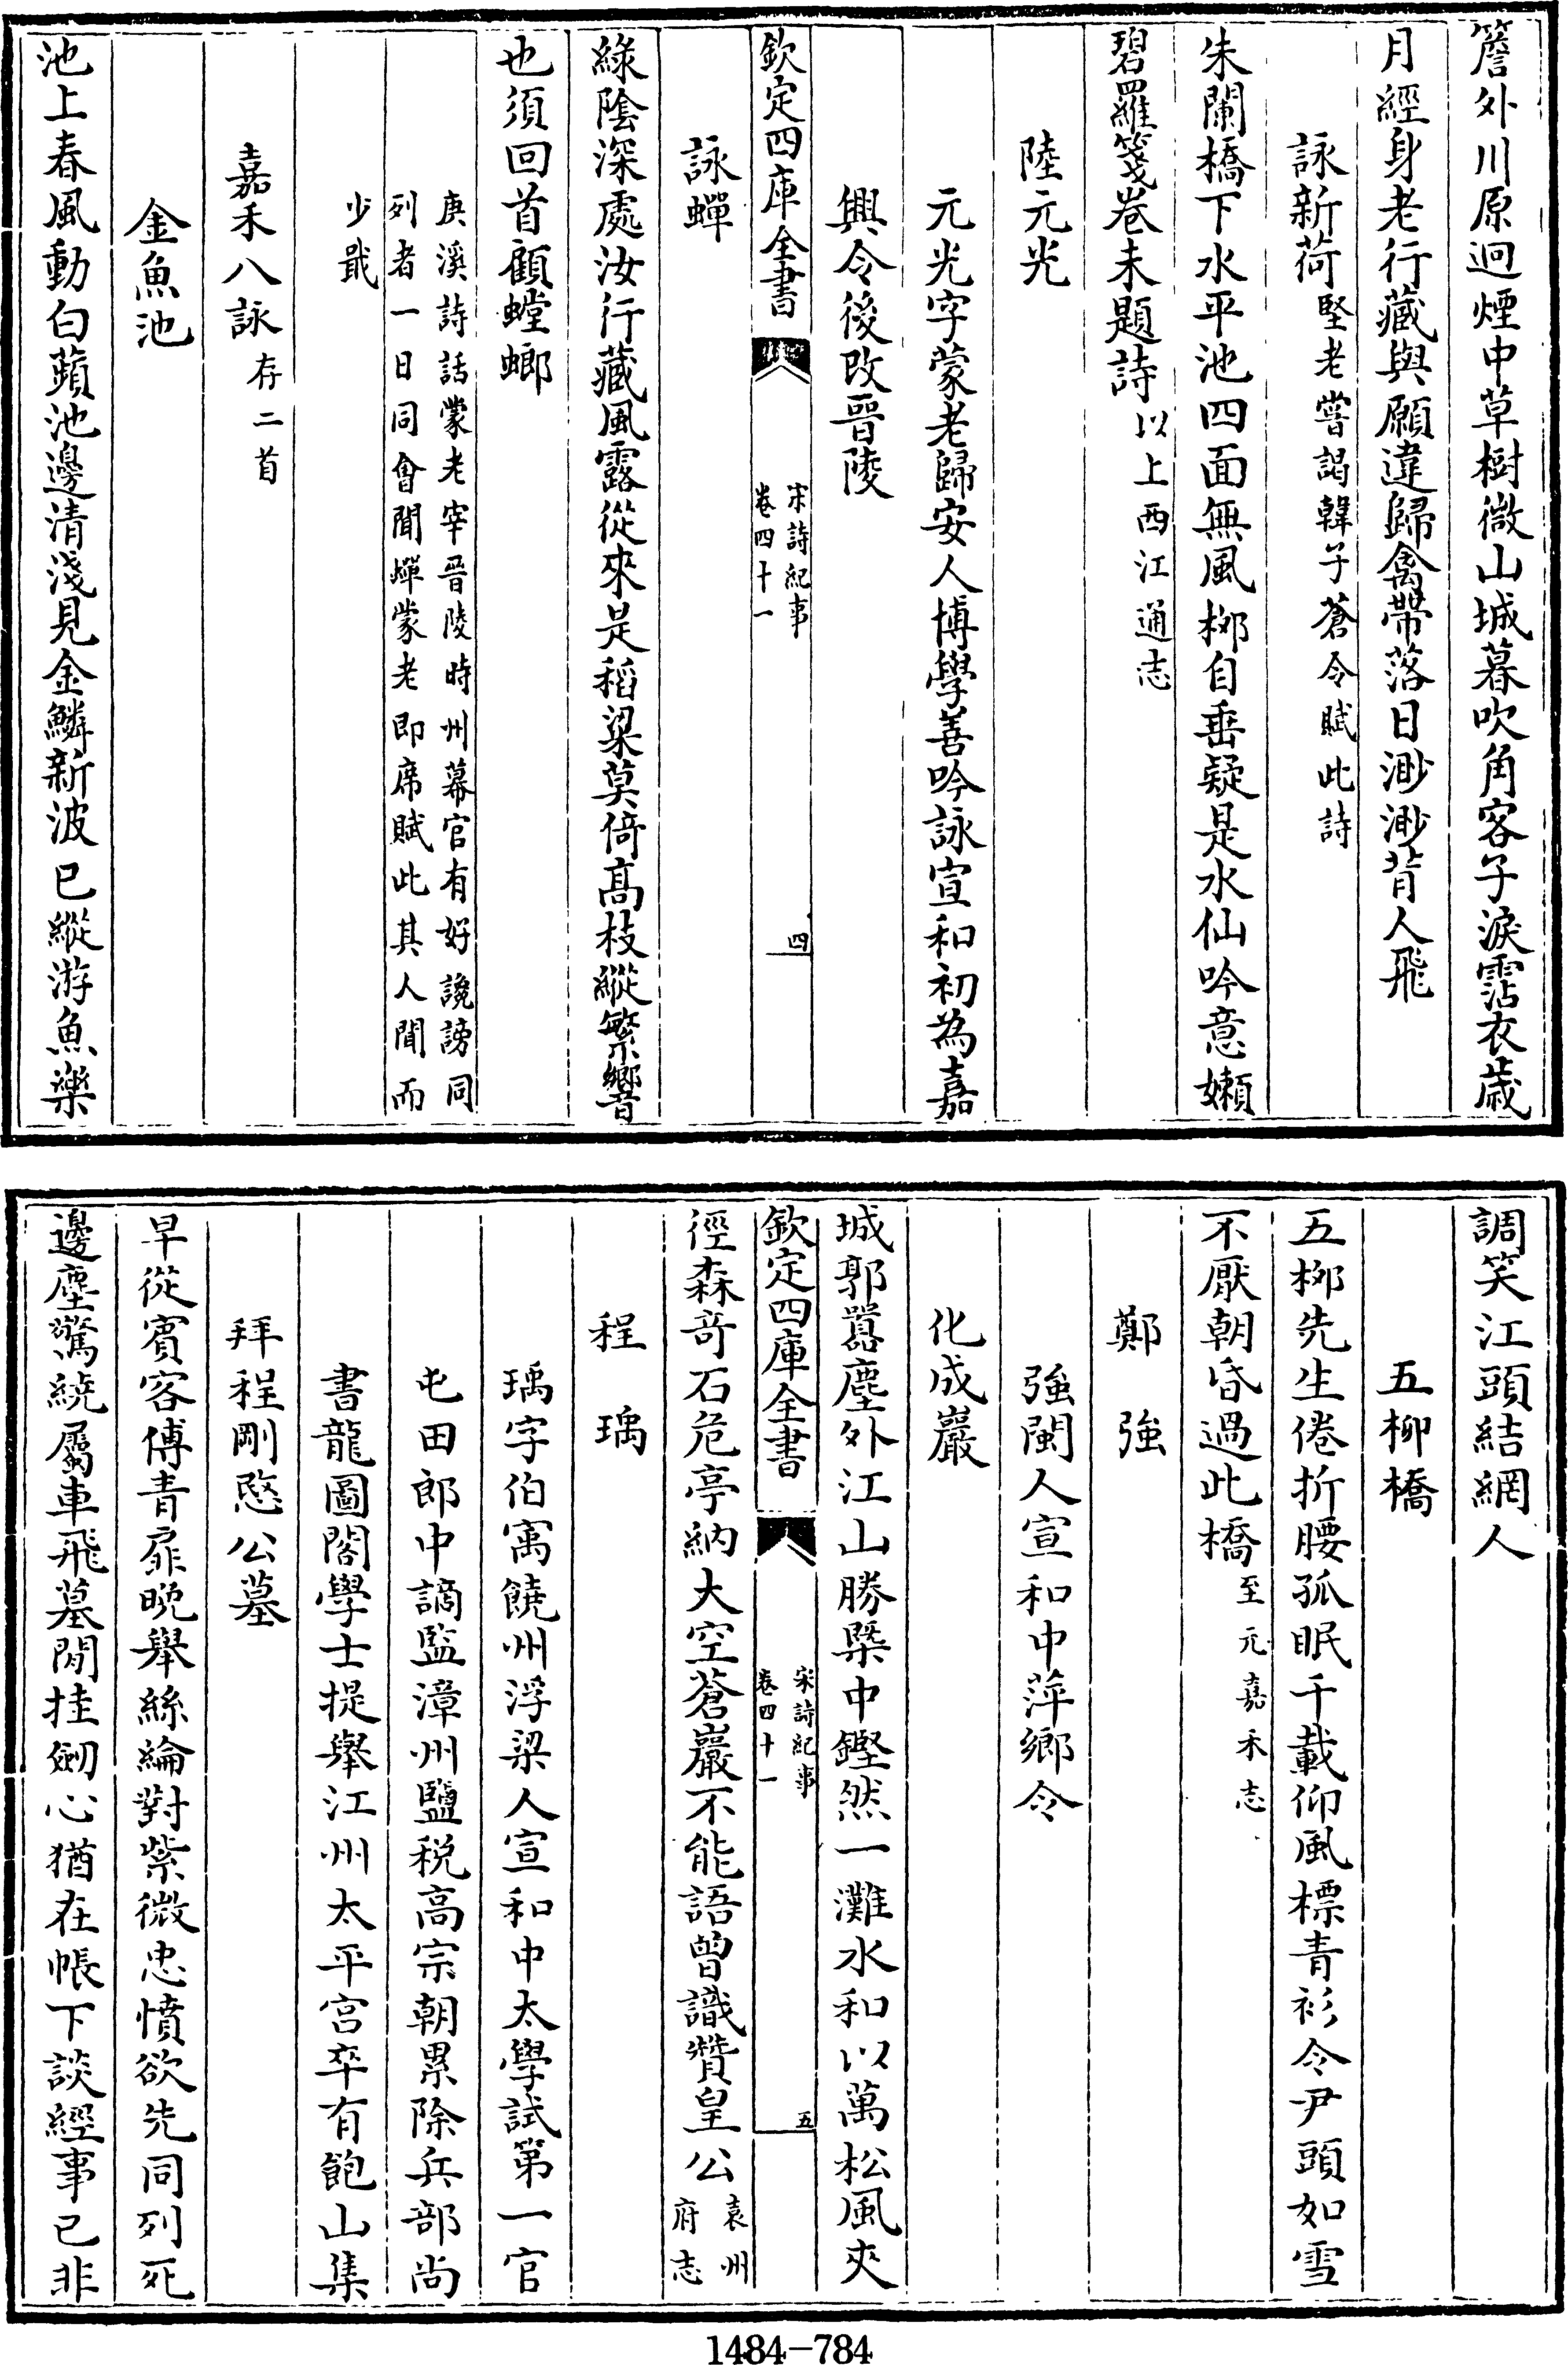 簷外川原迥煙中草樹微山城暮吹角客子淚霑衣歳
月經身老行藏與願違歸禽帶落日渺渺背人飛
詠新荷堅老嘗謁韓子蒼令賦此詩
朱闌橋下水平池四面無風柳自垂疑是水仙吟意嬾
碧羅箋卷未題詩以上西江通志
陸元光
元光字蒙老歸安人博學善吟詠宣和初為嘉
興令後改晉陵
欽定四庫全書
宋詩紀事
卷四十一
四
詠蟬
綠陰深處汝行藏風露從來是稻粱莫倚髙枝縱繁響
也須回首顧螳螂
庚溪詩話蒙老宰晉陵時州幕官有好讒謗同
列者一日同會聞蟬蒙老即席賦此其人聞而
少戢
嘉禾八詠存二首
金魚池
池上春風動白蘋池邊清淺見金鱗新波已縱游魚樂
調笑江頭結網人
五柳橋
五柳先生倦折腰孤眠千載仰風標青衫令尹頭如雪
不厭朝昏過此橋至元嘉禾志
鄭強
強閩人宣和中萍鄉令
化成巖
城郭囂塵外江山勝槩中鏗然一灘水和以萬松風夾
欽定四庫全書
宋詩紀事
卷四十一
五
徑森奇石危亭納大空蒼巖不能語曾識贊皇公袁州
府志
程瑀
瑀字伯寓饒州浮梁人宣和中太學試第一官
屯田郎中謫監漳州鹽税高宗朝累除兵部尚
書龍圖閣學士提舉江州太平宫卒有飽山集
拜程剛愍公墓
早從賓客傅青扉晚舉絲綸對紫微忠憤欲先同列死
邊塵驚繞屬車飛墓閒挂劒心猶在帳下談經事已非
1484-784